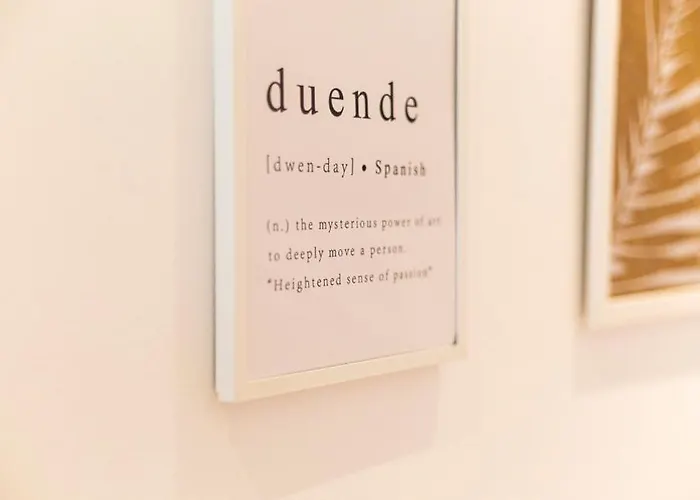 duende
[dwen-day] • Spanish
(n.) the mysterious power of art
to deeply move a person.
"Heightened sense of passion"